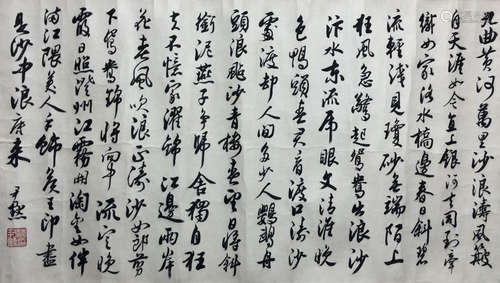 九曲黄河萬里沙浪濤風簸
自天涯如今直上銀河去同到牽
織女家洛水橋邊春日斜碧
流輕淺見瓊砂無端陌上
狂風急驚起鴛鴦出浪沙
汴水東流虎眼文清淮曉
色鴨頭春君看渡口濤沙
處渡却人間多少人鸚鵡洲
頭浪颭沙青樓春望日將斜
銜泥燕子爭歸舍獨自狂
夫不憶家濯錦江邊兩岸
花春風吹浪正濤沙女郎剪
下鴛鴦錦將向中流定晚
霞日照澄州江霧開淘金女伴
滿江隈美人首飾侯王印盡
是沙中浪底來
尹默